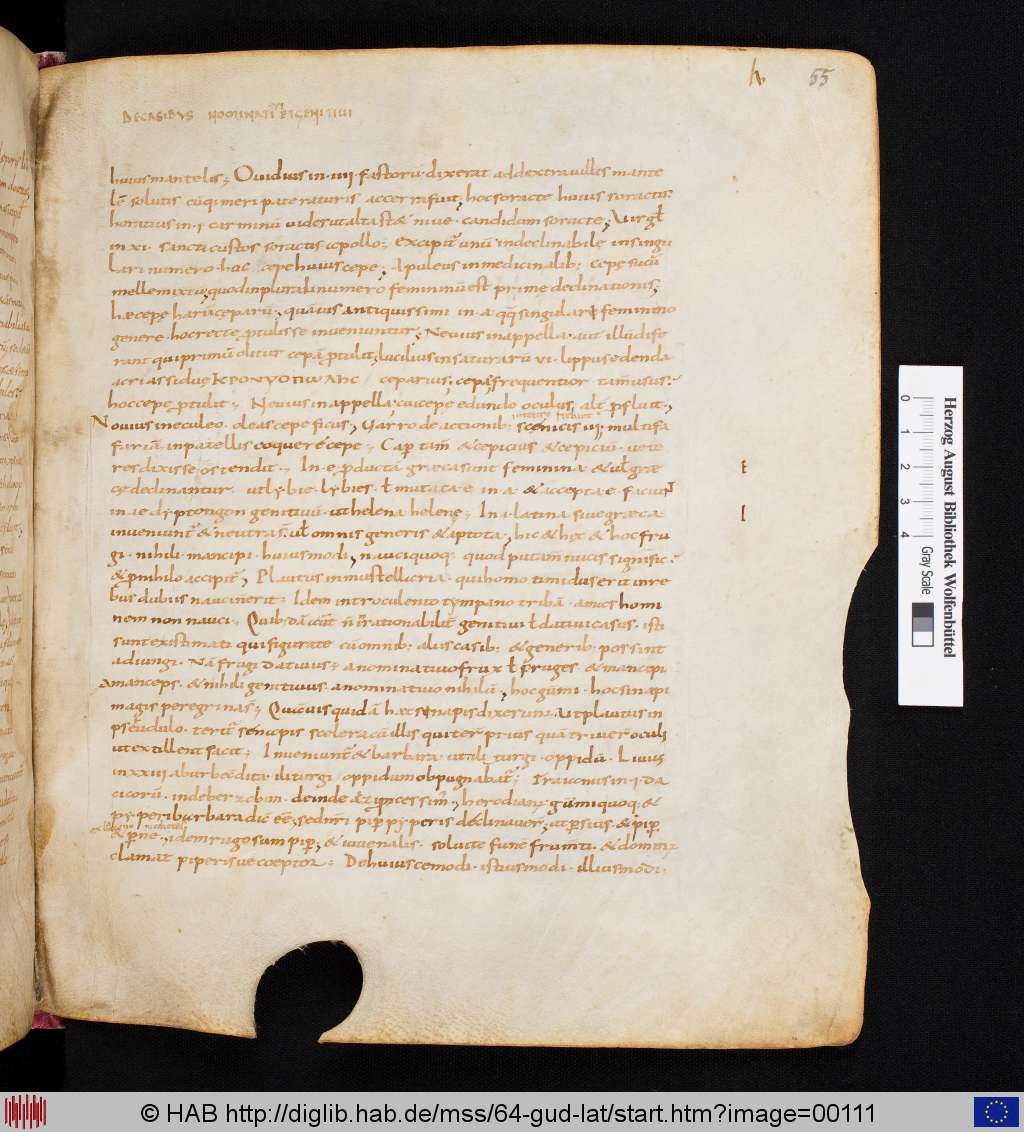 h. 55
DE CASIBUS NOMINATIUI ET GENITIUI
huius mantelis; Ouidius in IIII fastorū dixerat ad dextra uillis mante
le solutis cūq; meri patera turis acerra fuit, hoc soracte huius soractis.
horatius in I carminū uides ut alta stet niue candidum soracte; Uirgł
in XI sancti custos soractis apollo; excipit unū indeclinabile in singu
lari numero hoc cepe huius cepe; Apuleus in medicinalib; cepę sucū
melle mixtū; quod in plurali numero femininū est primę declinationis;
hæ cepę harū ceparū; quāuis antiquissimi in a qq; singulare feminino
genere hoc recte protulisse inueniuntur; Neuius in appella aut illud ise
rant qui primū olitur cepā protulit; lucilius in saturarū VI lippus edenda
acri assiduę ceparius, cepa; frequentior tam usus.
hoc cepe protulit; Neuius in appella cui cepe edundo oculus alter profluit;
Nouius in eculeo oleas cepe ficus; Uarro de actionib; scenicis III multifa
fariā in patellis coquere cepe; Capr tam et cepicius et cepiciū uete
res dixisse ostendit; In e producta græca sunt feminina et uel græ
cę declinantur ut lybie lybies ł mutata e in a et accepta e faciunt
in ae dyptongon genitiuū ut helena helenę; In i latina siue græca
inueniuntur et neutra uł omnis generis et aptota, hic et hęc et hoc fru
gi nihili mancipi huiusmodi, nauci quoq; quod putamen nucis significat
et pro nihilo accipitur; Plautus in mustellaria qui homo timidus erit in re
bus dubiis nauci nerit; Idem in troculento tympanotribā amas homi
nem non nauci; Quib; dā genitiui ł datiui casus isti
sunt existimati qui figurate cū omnib; aliis casib; et generib; possint
adiungi. Nā frugi datiuus; a nominatiuo frux ł fruges et mancipi
a manceps et nihili genitiuus a nominatiuo nihilū; hoc gūmi hoc sinapi
magis peregrina s; Quāuis quidā hæc sinapis dixerunt. Ut plautus in
pseudulo teritur senapis scelera cū illis qui terunt prius quā triuerunt oculi
ut extillent facit; Inueniuntur et barbara ut ili turgi oppidū Liuius
in XXIII ab urbe condita iliturgi oppidum obpugnabatur; Traianus in I da
cicorū inde berzobim deinde aizi processimus; herodian; gūmi quoq; et
py; peri barbara dic eē; sed nostri piper pyperis declinauer; ut persius et piper
et perne; idem rugosum piper; et iuuenalis soluite fune frumti et domin
clamat piperisue coeptor; De huiuscemodi istiusmodi illiusmodi
E
I
Herzog August Bibliothek Wolfenbüttel
Gray Scale
0 1 2 3 4
© HAB http://diglib.hab.de/mss/64-gud-lat/start.htm?image=00111